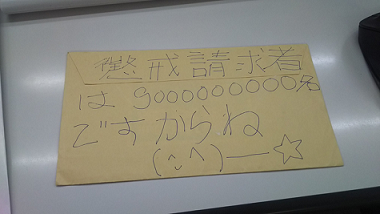 懲戒請求者
は9000000000名
ですからね
(^^)―☆